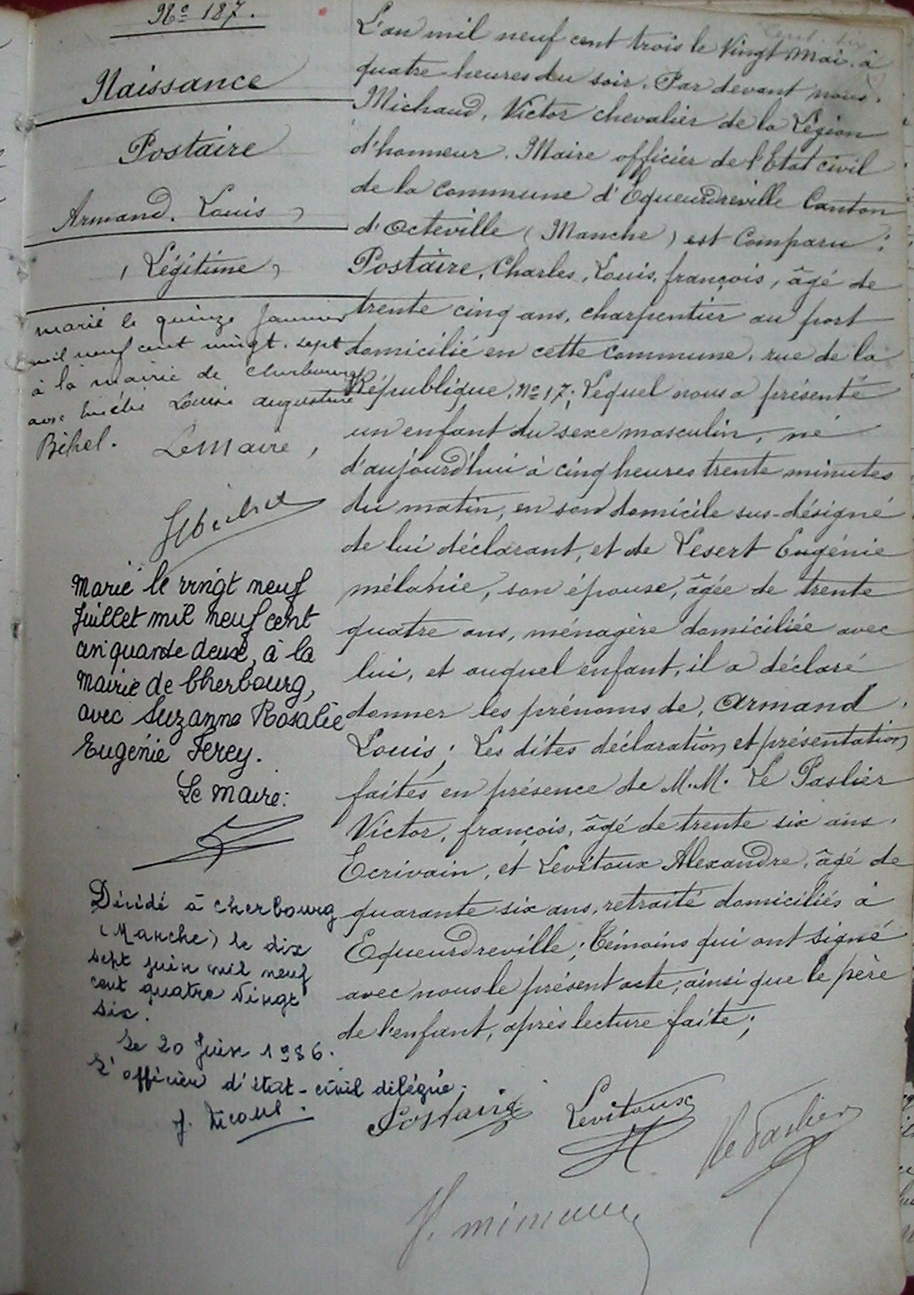 No 187.
Naissance
Postaire
Armand. Louis
(Légitime)
marié le quinze Janvier
mil neuf cent vingt. sept
à la mairie de Cherbourg
avec Louise augustine
Bihel. Le Maire,
Marié le vingt neuf
Juillet mil neuf cent
cinquante deux, à la
Mairie de Cherbourg,
avec Suzanne Rosalie
Eugénie Ferey.
Le Maire:
Décédé à Cherbourg
(Manche) le dix
sept juin mil neuf
cent quatre vingt
six.
Le 20 Juin 1986.
L'officier d'état-civil délégué:
L'an mil neuf cent trois le Vingt Mai. à
quatre heures du soir. Par devant nous.
Michaud, Victor chevalier de la Légion
d'honneur. Maire officier de l'Etat civil
de la commune d'Equeurdreville Canton
d'Octeville (Manche) est Comparu:
Postaire, Charles, Louis, françois, âgé de
trente cinq ans, charpentier au port
domicilié en cette commune, rue de la
République, No 17; Lequel nous a présenté
un enfant du sexe masculin, né
d'aujourd'hui à cinq heures trente minutes
du matin, en son domicile sus-désigné
de lui déclarant, et de Lesert Eugénie
mélanie, son épouse, âgée de trente
quatre ans, ménagère domiciliée avec
lui, et auquel enfant, il a déclaré
donner les prénoms de, Armand.
Louis; Les dites déclaration et présentation
faites en présence de M.M. Le Paslier
Victor, françois, âgé de trente six ans.
Ecrivain, et Levitoux Alexandre, âgé de
quarante six ans, retraité domiciliés à
Equeurdreville; Témoins qui ont signé
avec nous le présent acte, ainsi que le père
de l'enfant, après lecture faite;
Postaire Levitoux Le Paslier